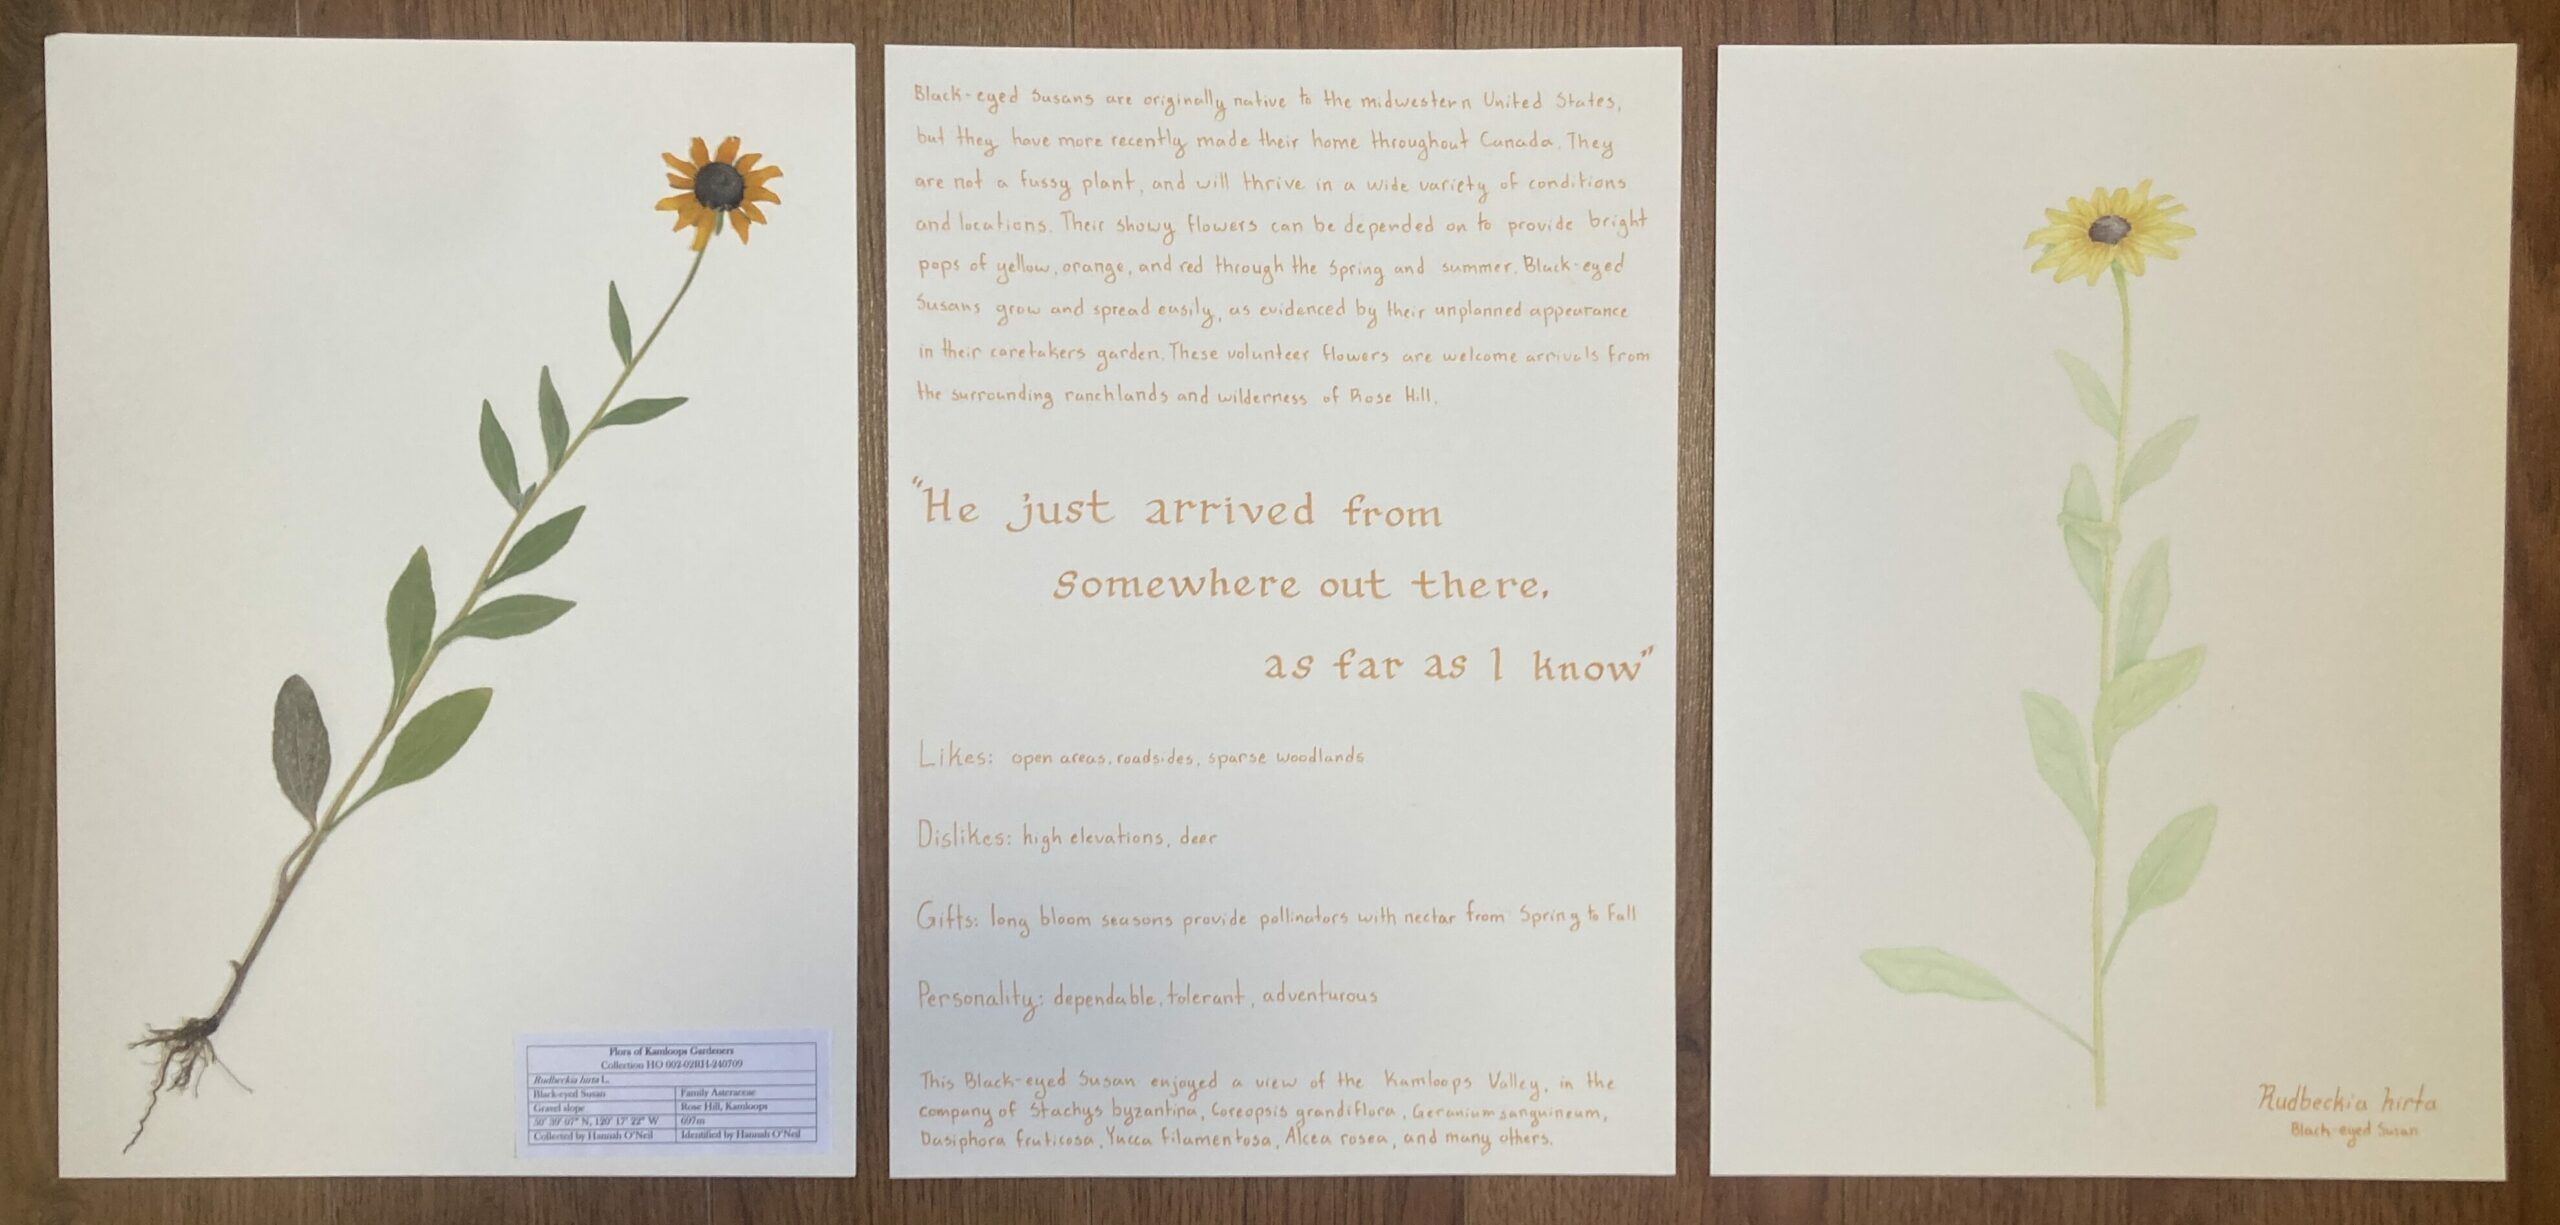 Flora of Kamloops Gardeners
Collection HO 002-02RH-240709
Rudbeckia hirta L.
Black-eyed Susan Family Asteraceae
Gravel slope Rose Hill, Kamloops
50° 39' 07" N, 120° 17' 22" W 697m
Collected by Hannah O'Neil Identified by Hannah O'Neil
Black-eyed Susans are originally native to the midwestern United States,
but they have more recently made their home throughout Canada. They
are not a fussy plant, and will thrive in a wide variety of conditions
and locations. Their showy flowers can be depended on to provide bright
pops of yellow, orange, and red through the Spring and summer. Black-eyed
Susans grow and spread easily, as evidenced by their unplanned appearance
in their caretakers garden. These volunteer flowers are welcome arrivals from
the surrounding ranchlands and wilderness of Rose Hill.
"He just arrived from
somewhere out there,
as far as I know"
Likes: open areas, roadsides, sparse woodlands
Dislikes: high elevations, deer
Gifts: long bloom seasons provide pollinators with nectar from Spring to Fall
Personality: dependable, tolerant, adventurous
This Black-eyed Susan enjoyed a view of the Kamloops Valley, in the
company of Stachys byzantina, Coreopsis grandiflora, Geranium sanguineum,
Dasiphora fruticosa, Yucca filamentosa, Alcea rosea, and many others.
Rudbeckia hirta
Black-eyed Susan